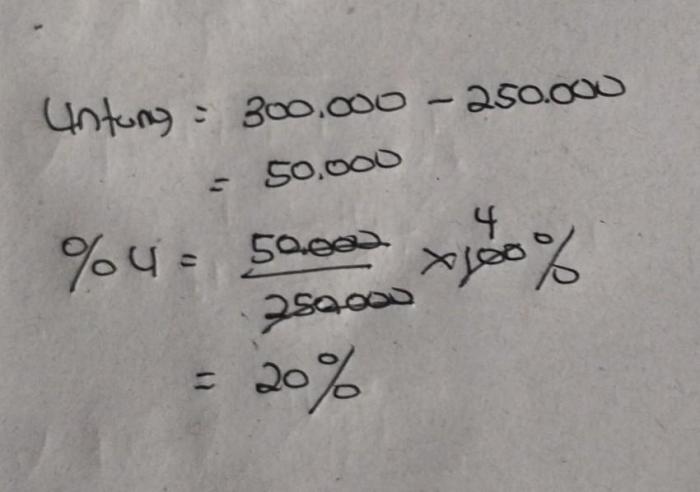 Untung = 300.000 - 250.000
= 50.000
%U = 50.000 / 250.000 × 100 4 %
= 20%